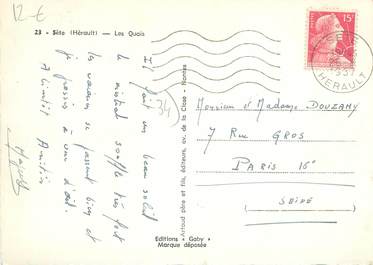 12-€
23 - Sète (Hérault) — Les Quais
Il fait un beau soleil
le mistral souffle très fort
les vacances se passent bien et
je pense à vous
Amitiés
(34)
15F
HERAULT
Monsieur et Madame DOUZAMY
7 Rue GROS
PARIS 16°
SEINE
Artaud père et fils, éditeurs, av. de la Close - Nantes
Editions "Gaby"
Marque déposée